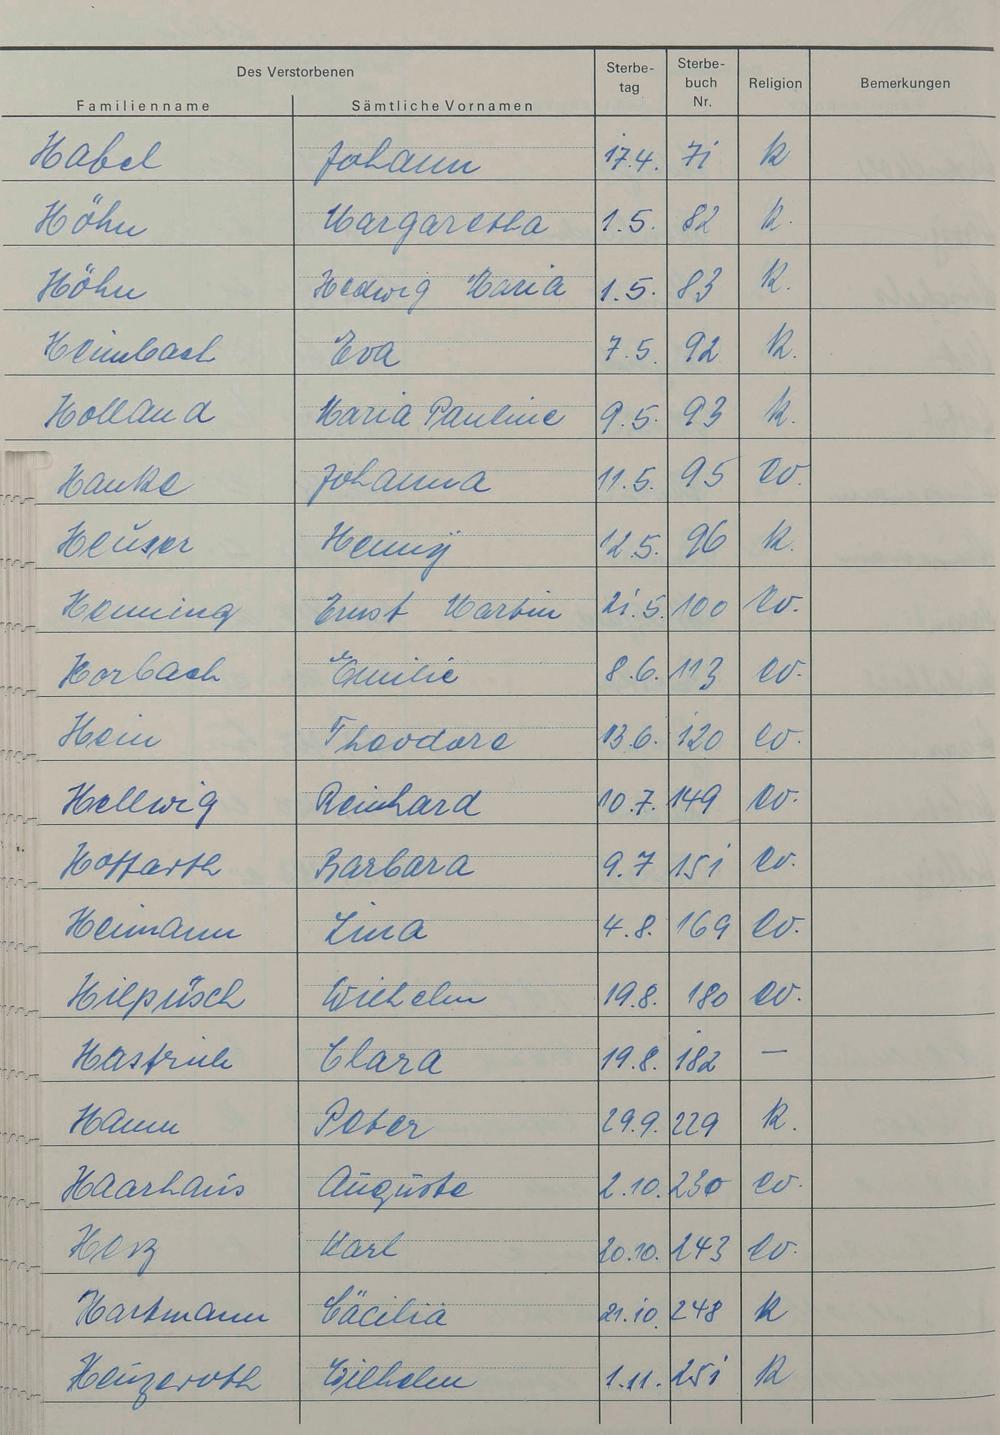 Des Verstorbenen
Familienname Sämtliche Vornamen Sterbe-tag Sterbe-buch Nr. Religion Bemerkungen
Habel Johann 17.4. 71 k
Höhn Margaretha 1.5. 82 k.
Höhn Hedwig Maria 1.5. 83 k.
Heimbach Eva 7.5. 92 k.
Holland Maria Pauline 9.5. 93 k.
Hanke Johanna 11.5. 95 ev.
Heuser Henny 12.5. 96 k.
Henning Ernst Martin 21.5. 100 ev.
Horbach Emilie 8.6. 113 ev.
Hein Theodore 13.6. 120 ev.
Hellwig Reinhard 10.7. 149 ev.
Hoffarth Barbara 9.7 151 ev.
Heimann Lina 4.8. 169 ev.
Hilpüsch Wilhelm 19.8. 180 ev.
Hastrich Clara 19.8. 182 —
Hann Peter 29.9. 229 k.
Haarhaus Auguste 2.10. 230 ev.
Herz Karl 20.10. 243 ev.
Hartmann Cäcilia 21.10. 248 k
Heuzeroth Wilhelm 1.11. 251 k